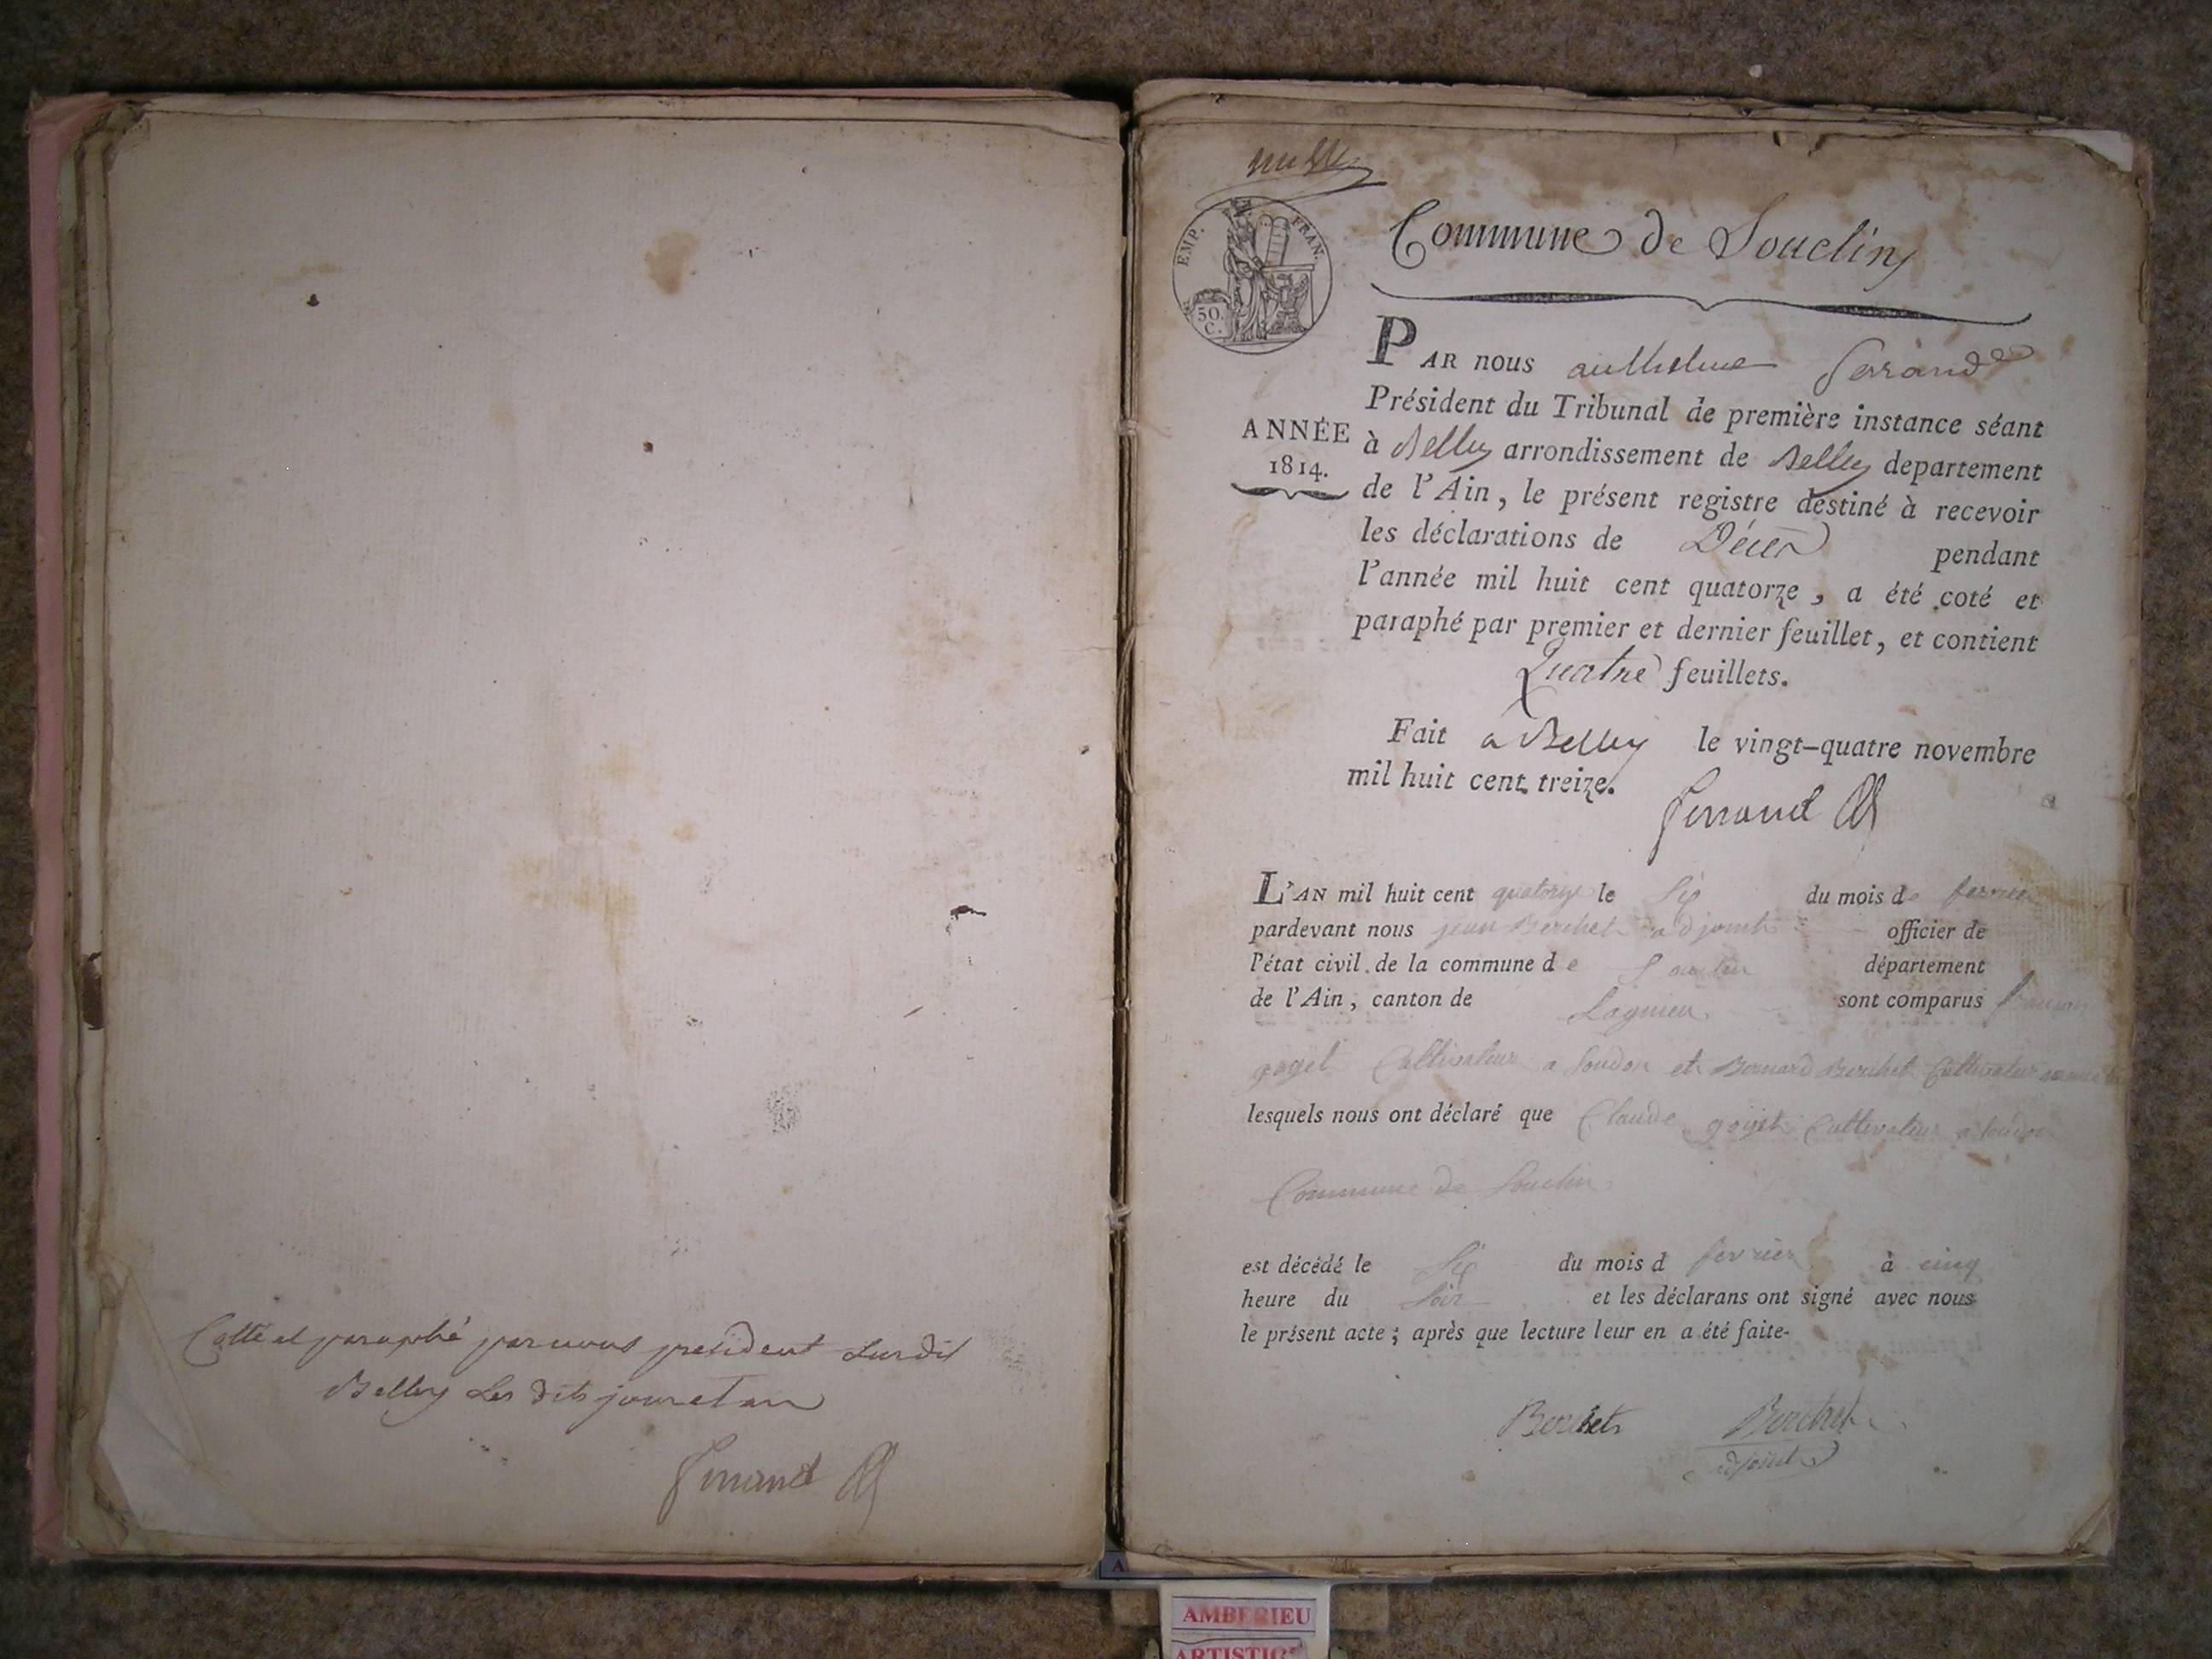 Cotté et paraphé par nous president susdit
Belley les dits jour et an
Ferrand
EMP. FRAN.
50.
C.
Commune de Souclin
ANNÉE
1814.
PAR nous anthelme Ferrand
Président du Tribunal de première instance séant
à Belley arrondissement de Belley departement
de l'Ain, le présent registre destiné à recevoir
les déclarations de Décès pendant
l'année mil huit cent quatorze, a été coté et
paraphé par premier et dernier feuillet, et contient
Quatre feuillets.
Fait a Belley le vingt-quatre novembre
mil huit cent treize.
Ferrand
L'AN mil huit cent quatorze le Six du mois de fevrier
pardevant nous jean Berchet adjoint officier de
l'état civil de la commune de Souclin département
de l'Ain, canton de Lagnieu sont comparus
goyet Cultivateur a Soudon et Bernard Berchet Cultivateur
lesquels nous ont déclaré que Claude goyet Cultivateur a Soudon
Commune de Souclin
est décédé le Six du mois d fevrier à cinq
heure du Soir et les déclarans ont signé avec nous
le présent acte; après que lecture leur en a été faite-
Berchet Berchet
adjoint
A
AMBERIEU
ARTISTIC